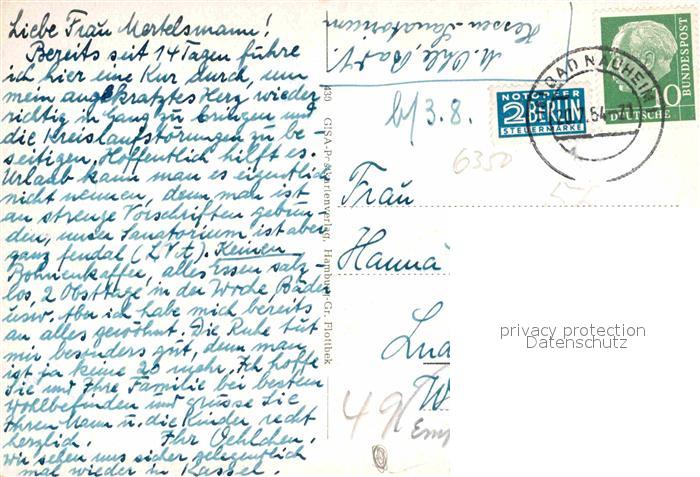 Liebe Frau Mertelsmann!
Bereits seit 14 Tagen führe
ich hier eine Kur durch, um
mein angekratztes Herz wieder
richtig in Gang zu bringen und
die Kreislaufstörungen zu be-
seitigen. Hoffentlich hilft es.
Urlaub kann man es eigentlich
nicht nennen, denn man ist
an strenge Vorschriften gebun-
den, unser Sanatorium ist aber
ganz feudal (L.V.A.). Keinen
Bohnenkaffee, alles Essen salz-
los, 2 Obsttage in der Woche, Bäder
usw. Aber ich habe mich bereits
an alles gewöhnt. Die Ruhe tut
mir besonders gut, denn man
ist ja keine 20 mehr. Ich hoffe
Sie und Ihre Familie bei bestem
Wohlbefinden und grüsse Sie
Ihren Mann u. die Kinder recht
herzlich. Ihr Oehlchen.
Wir sehen uns sicher gelegentlich
mal wieder in Kassel.
430 GISA-Postkartenverlag, Hamburg-Gr. Flottbek
Hessen Sanatorium
b/ 3.8.
NOTOPFER
2 BERLIN
STEUERMARKE
BAD NAUHEIM
DEUTSCHE
BUNDESPOST
0
6350
Frau
Hanna
49
privacy protection
Datenschutz